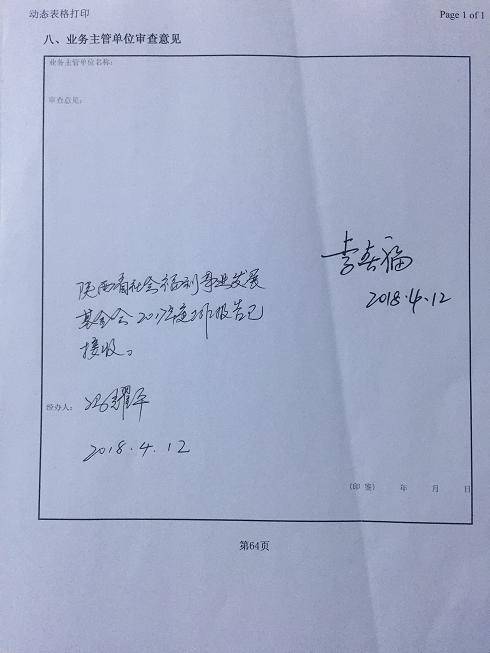 动态表格打印
Page 1 of 1
八、业务主管单位审查意见
业务主管单位名称:
审查意见:
李喜福
2018.4.12
陕西省社会福利事业发展
基金会2017年度工作报告已
接收。
经办人: 冯耀平
2018.4.12
(印 签) 年 月 日
第64页